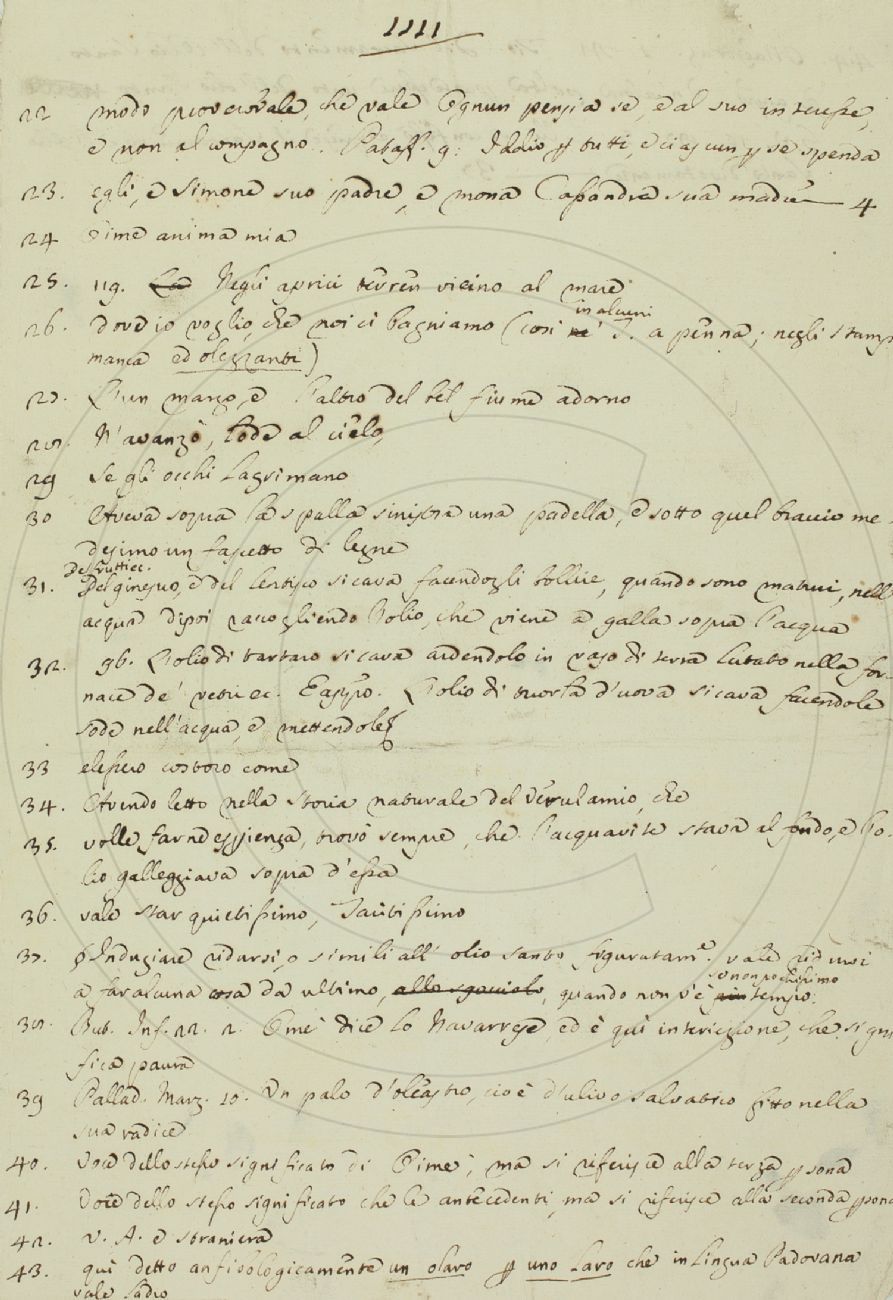 1111
22 modo proverbiale, che vale Ognun pensi a se, e al suo interesse,
e non al compagno. Pataff. 9: Iddio p tutti, e ciascun p se spenda
23. egli, e Simone suo padre, e mona Cassandra sua madre 4
24 Oime anima mia
25. 119. La Negli aprici terren vicino al mare
in alcuni
26. dove io voglio, che noi ci bagniamo (così ne' T. a penna; negli stamp
manca ed olezzanti)
27. L'un margo, e l'altro del bel fiume adorno
28. N'avanzò, lode al cielo,
29 Se gli occhi lagrimano
30 Aveva sopra la spalla sinistra una padella, e sotto quel braccio me-
desimo un fascetto di legne
De' frutti ec.
31. Del ginepro, e del lentisco si cava facendogli bollire, quando sono maturi, nell'
acqua dipoi raccogliendo l'olio, che viene a galla sopra l'acqua
32. 96. L'olio di tartaro si cava ardendolo in vaso di terra lutato nella for-
nace de' vetri ec. E appo. L'olio di tuorla d'uova si cava facendole
sode nell'acqua, e mettendole
33 elessero costoro come
34. Avendo letto nella Storia naturale del Verulamio, che
35. volle farne esperienza, trovò sempre, che l'acquavite stava al fondo, e l'o-
lio galleggiava sopra d'essa
36. vale star quietissimo, Tacitissimo
37. Indugiare ridursi, o simili all' olio santo figuratam.e vale ridursi
se non pochissimo
a far alcuna cosa da ultimo, allo sgocciolo, quando non v'è più tempo.
38. But. Inf. 22. 2. Omè dice lo Navarrese, ed è quì interiezione, che signi
fica paura
39 Pallad. Marz. 10. Un palo d'oleastro, cioè d'ulivo salvatico fitto nella
sua radice
40. Voce dello stesso significato di Oime', ma si riferisce alla terza psona
41. Voce dello stesso significato che le antecedenti, ma si riferisce alla seconda pson
42. v. A. e straniera
43. quì detto anfibologicamente un olaro p uno laro che in Lingua Padovana
vale ladro